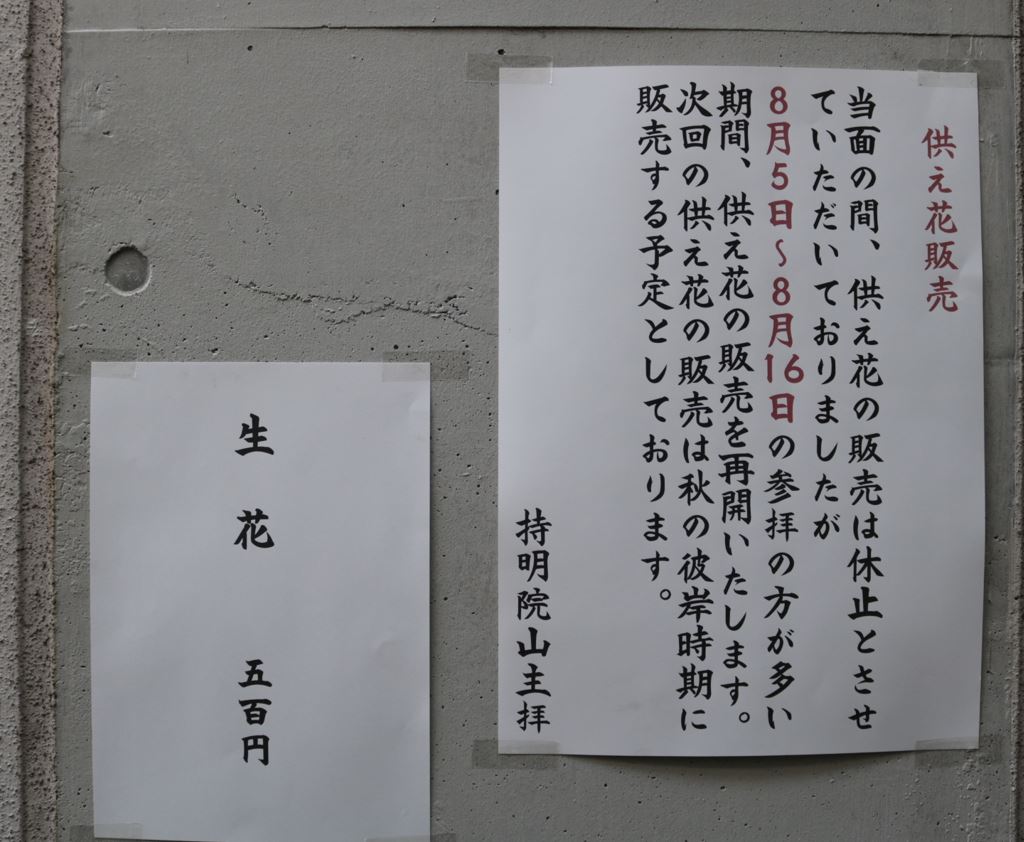 供え花販売
当面の間、供え花の販売は休止とさせ
ていただいておりましたが
8月5日~8月16日の参拝の方が多い
期間、供え花の販売を再開いたします。
次回の供え花の販売は秋の彼岸時期に
販売する予定としております。
持明院山主拝
生花 五百円